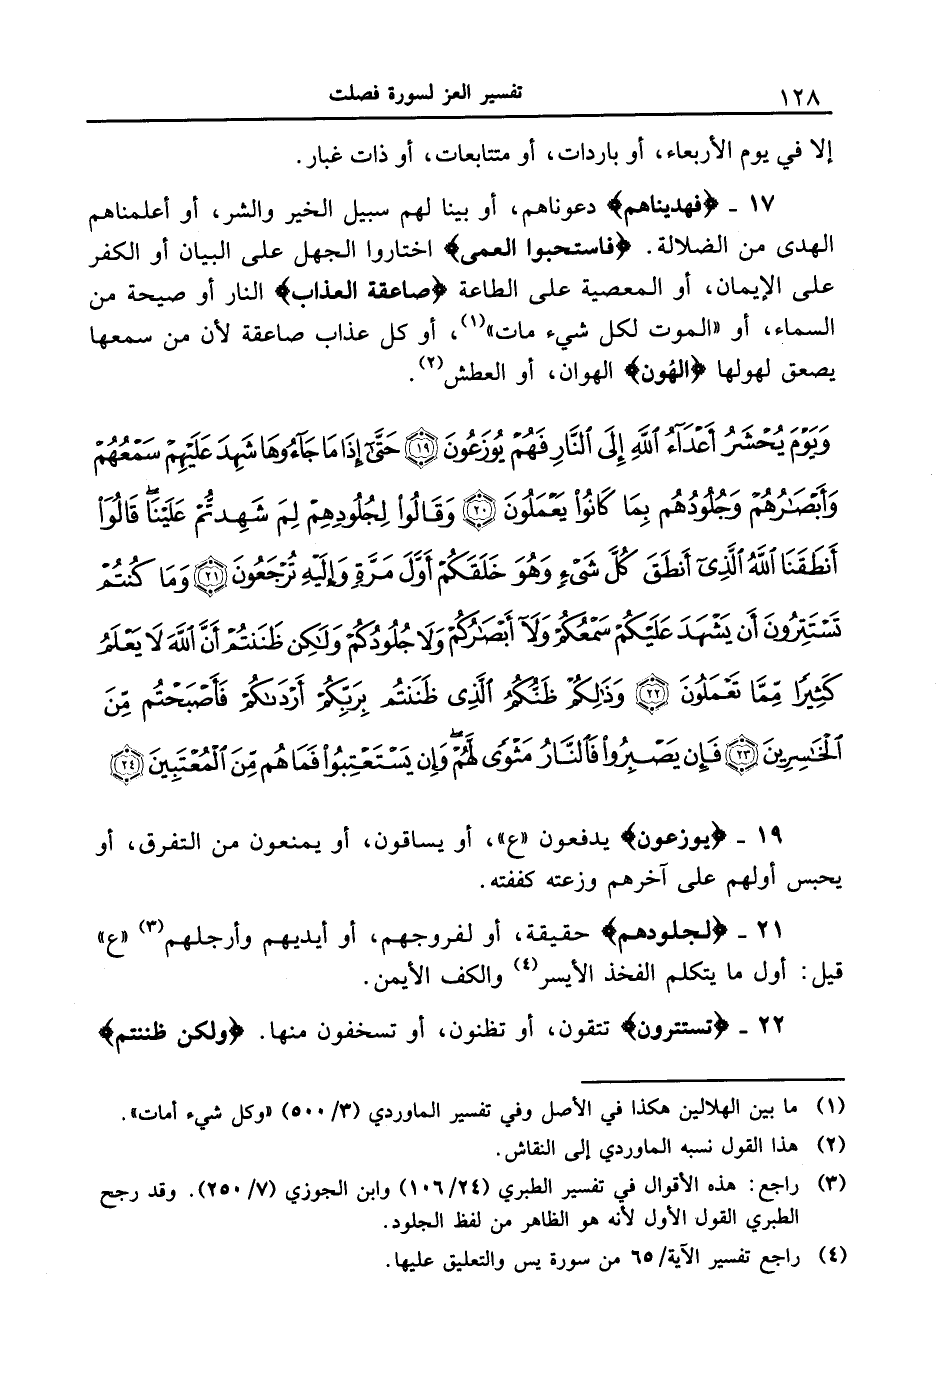 ١٢٨ تفسير العز لسورة فصلت
إلا في يوم الأربعاء، أو باردات، أو متتابعات، أو ذات غبار.
١٧ ـ ﴿فهديناهم﴾ دعوناهم، أو بينا لهم سبيل الخير والشر، أو أعلمناهم
الهدى من الضلالة. ﴿فاستحبوا العمى﴾ اختاروا الجهل على البيان أو الكفر
على الإيمان، أو المعصية على الطاعة ﴿صاعقة العذاب﴾ النار أو صيحة من
السماء، أو «الموت لكل شيء مات»(١)، أو كل عذاب صاعقة لأن من سمعها
يصعق لهولها ﴿الهُون﴾ الهوان، أو العطش(٢).
وَيَوْمَ يُحْشَرُ أَعْدَآءُ ٱللَّهِ إِلَى ٱلنَّارِ فَهُمْ يُوزَعُونَ ﴿١٩﴾ حَتَّىٰٓ إِذَا مَا جَآءُوهَا شَهِدَ عَلَيْهِمْ سَمْعُهُمْ
وَأَبْصَٰرُهُمْ وَجُلُودُهُم بِمَا كَانُوا۟ يَعْمَلُونَ ﴿٢٠﴾ وَقَالُوا۟ لِجُلُودِهِمْ لِمَ شَهِدتُّمْ عَلَيْنَا ۖ قَالُوٓا۟
أَنطَقَنَا ٱللَّهُ ٱلَّذِىٓ أَنطَقَ كُلَّ شَىْءٍ وَهُوَ خَلَقَكُمْ أَوَّلَ مَرَّةٍ وَإِلَيْهِ تُرْجَعُونَ ﴿٢١﴾ وَمَا كُنتُمْ
تَسْتَتِرُونَ أَن يَشْهَدَ عَلَيْكُمْ سَمْعُكُمْ وَلَآ أَبْصَٰرُكُمْ وَلَا جُلُودُكُمْ وَلَٰكِن ظَنَنتُمْ أَنَّ ٱللَّهَ لَا يَعْلَمُ
كَثِيرًا مِّمَّا تَعْمَلُونَ ﴿٢٢﴾ وَذَٰلِكُمْ ظَنُّكُمُ ٱلَّذِى ظَنَنتُم بِرَبِّكُمْ أَرْدَىٰكُمْ فَأَصْبَحْتُم مِّنَ
ٱلْخَٰسِرِينَ ﴿٢٣﴾ فَإِن يَصْبِرُوا۟ فَٱلنَّارُ مَثْوًى لَّهُمْ ۖ وَإِن يَسْتَعْتِبُوا۟ فَمَا هُم مِّنَ ٱلْمُعْتَبِينَ ﴿٢٤﴾
١٩ ـ ﴿يوزعون﴾ يدفعون «ع»، أو يساقون، أو يمنعون من التفرق، أو
يحبس أولهم على آخرهم وزعته كففته.
٢١ ـ ﴿لجلودهم﴾ حقيقة، أو لفروجهم، أو أيديهم وأرجلهم(٣) «ع»
قيل: أول ما يتكلم الفخذ الأيسر(٤) والكف الأيمن.
٢٢ ـ ﴿تستترون﴾ تتقون، أو تظنون، أو تسخفون منها. ﴿ولكن ظننتم﴾
(١) ما بين الهلالين هكذا في الأصل وفي تفسير الماوردي (٣/ ٥٠٠) «وكل شيء أمات».
(٢) هذا القول نسبه الماوردي إلى النقاش.
(٣) راجع: هذه الأقوال في تفسير الطبري (٢٤/ ١٠٦) وابن الجوزي (٧/ ٢٥٠). وقد رجح
الطبري القول الأول لأنه هو الظاهر من لفظ الجلود.
(٤) راجع تفسير الآية/ ٦٥ من سورة يس والتعليق عليها.